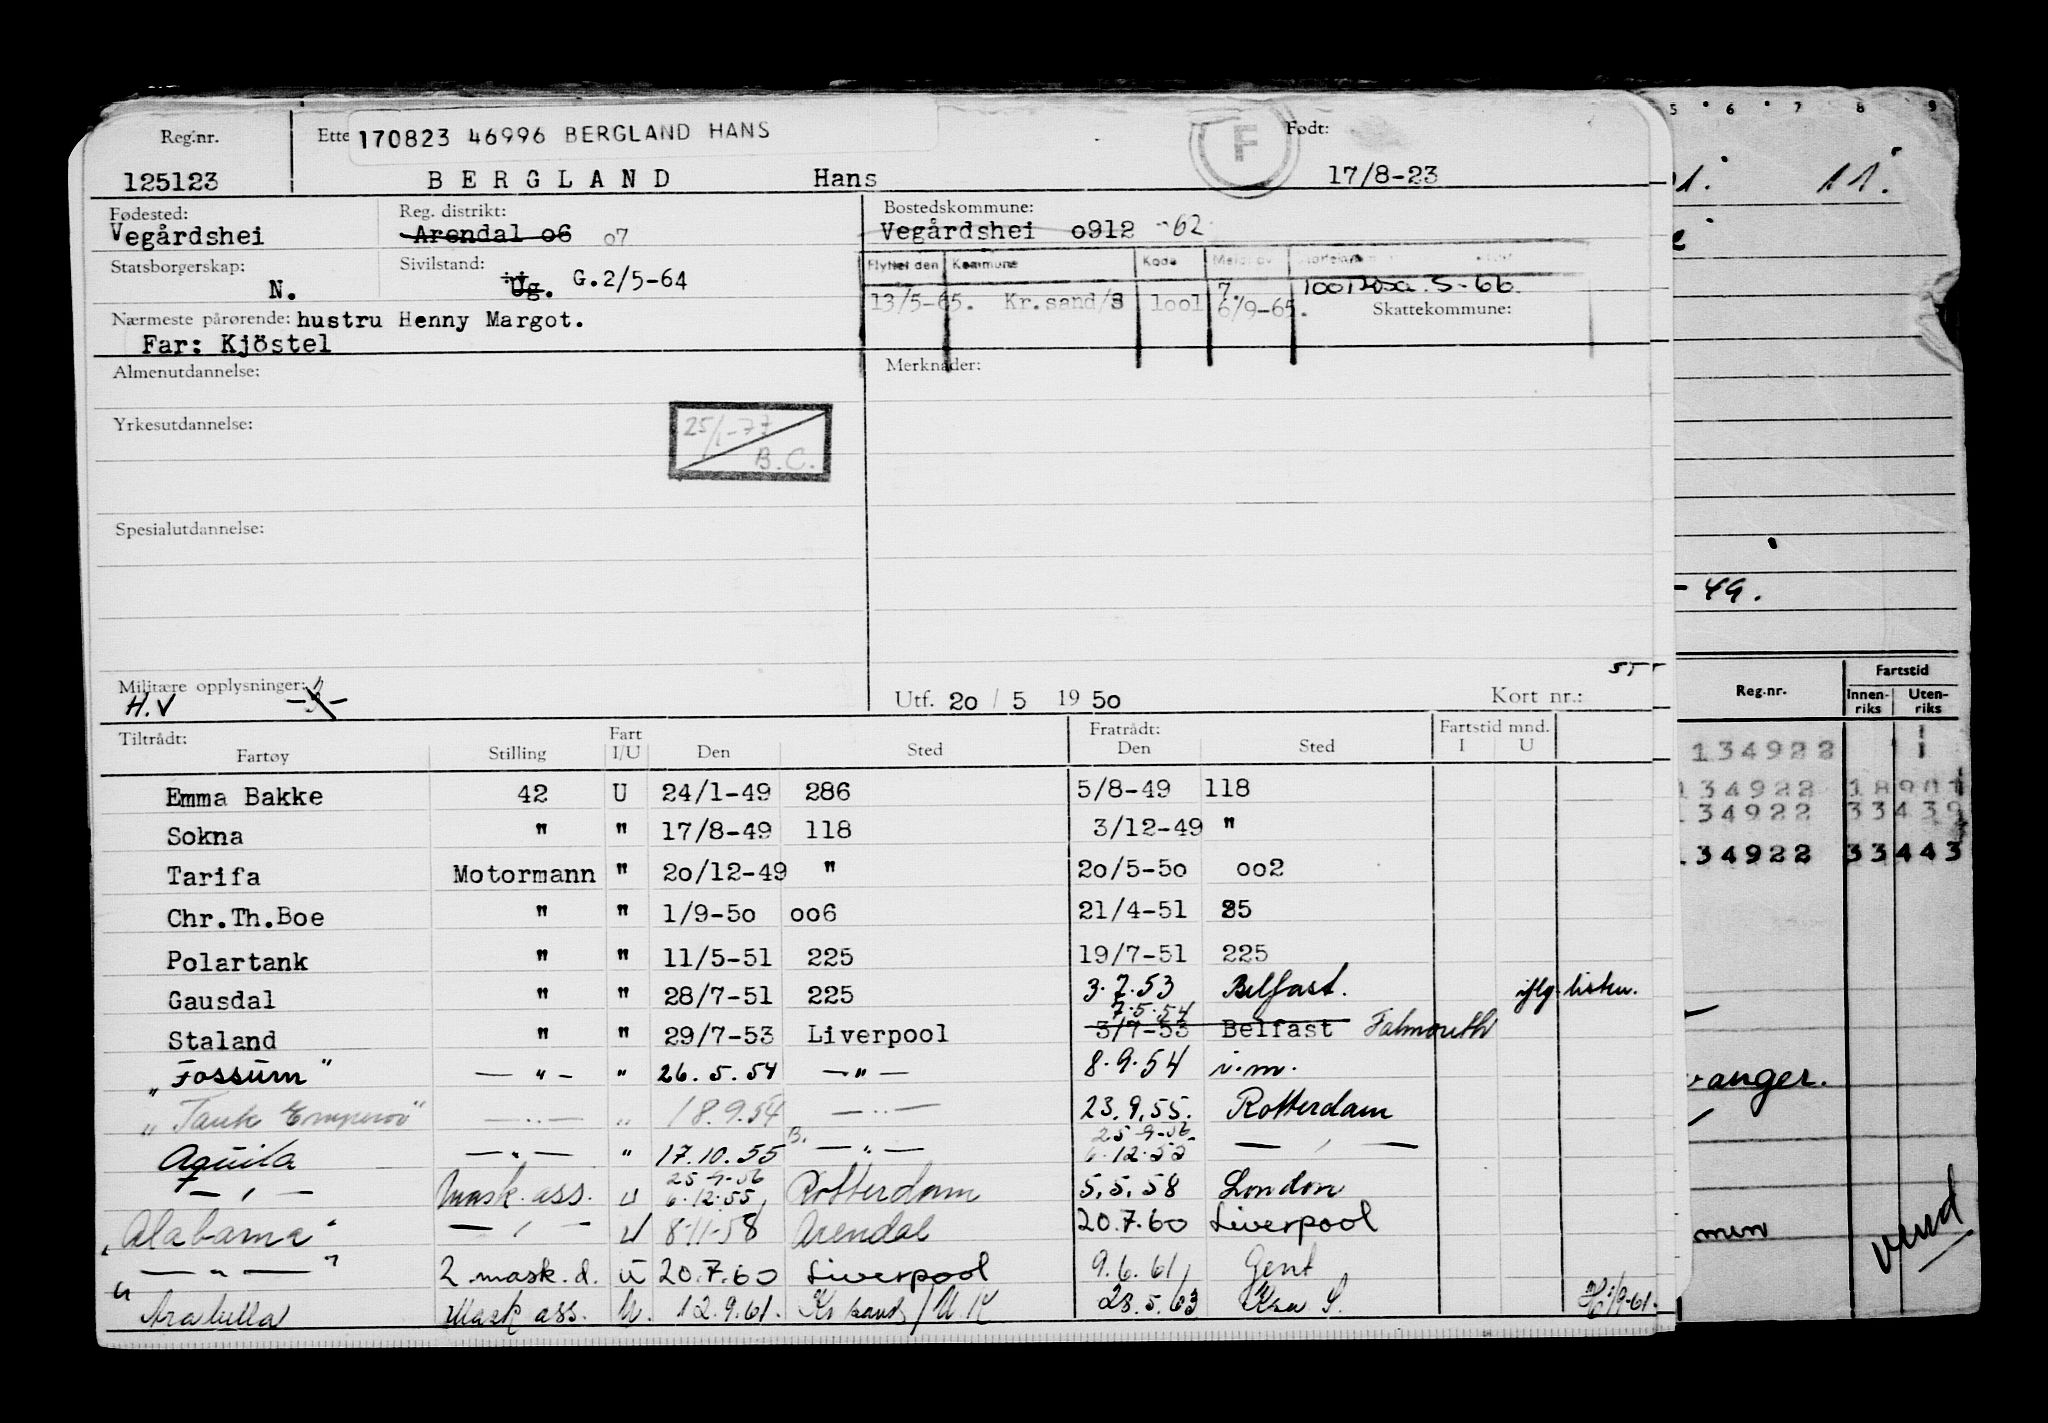 Reg.nr. Ette 170823 46996 BERGLAND HANS F Født:
125123 BERGLAND Hans 17/8-23
Fødested: Reg. distrikt: Bostedskommune:
Vegårdshei Arendal o6 o7 Vegårdshei o912 -62
Statsborgerskap: Sivilstand: Flyttet den Kommune Kode
N. Ug. G.2/5-64
13/5-65. Kr.sand/S 1001 6/9-65. Skattekommune:
Nærmeste pårørende: hustru Henny Margot.
Far: Kjöstel
Almenutdannelse: Merknader:
Yrkesutdannelse: 25/1-77 B.C.
Spesialutdannelse:
Militære opplysninger: H.V Utf. 2o / 5 19 5o Kort nr.:
Tiltrådt: Fart Fratrådt: Fartstid mnd.
Fartøy Stilling I/U Den Sted Den Sted I U
Emma Bakke 42 U 24/1-49 286 5/8-49 118
Sokna " " 17/8-49 118 3/12-49 "
Tarifa Motormann " 2o/12-49 " 2o/5-5o oo2
Chr.Th.Boe " " 1/9-5o oo6 21/4-51 85
Polartank " " 11/5-51 225 19/7-51 225
Gausdal " " 28/7-51 225 3.7.53 Belfast.
7.5.54
Staland " " 29/7-53 Liverpool 3/7-53 Belfast Falmouth
"Fossum" — " — " 26.5.54 — " — 8.9.54 i.m.
"Tank Emperor" — " — " 18.9.54 — " — 23.9.55. Rotterdam
25-9-56
Aquila — " — " 17.10.55 — " — 6.12.55 — " —
25-9-56
— " — Mask.ass. U 6.12.55 Rotterdam 5.5.58 London
"Alabama" — " — U 8-11-58 Arendal 20.7.60 Liverpool
" — " — " 2.mask.d. U 20.7.60 Liverpool 9.6.61 Gent
Arabella Mask ass. U. 12.9.61. Kr sand/U.K 28.5.63 Krs S. /9-61.
5 6 7 8 9
11.
- 49.
Fartstid
Reg.nr. Innen-riks Uten-riks
134922
134922 18901
134922 33439
134922 33443
anger.
men
vend